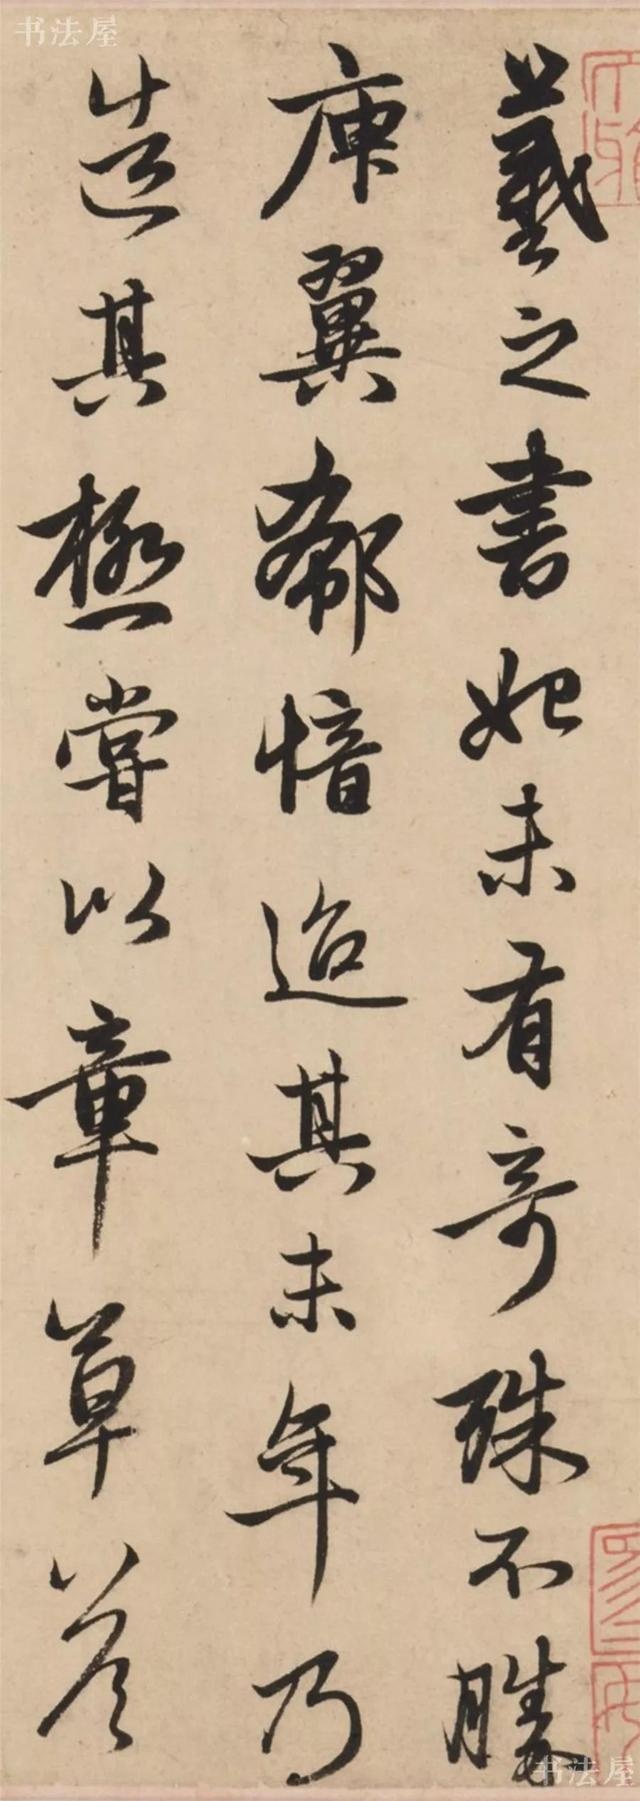 羲之書始未有奇殊不勝
庾翼郗愔迨其末年乃
造其極嘗以章草答
书法屋
书法屋